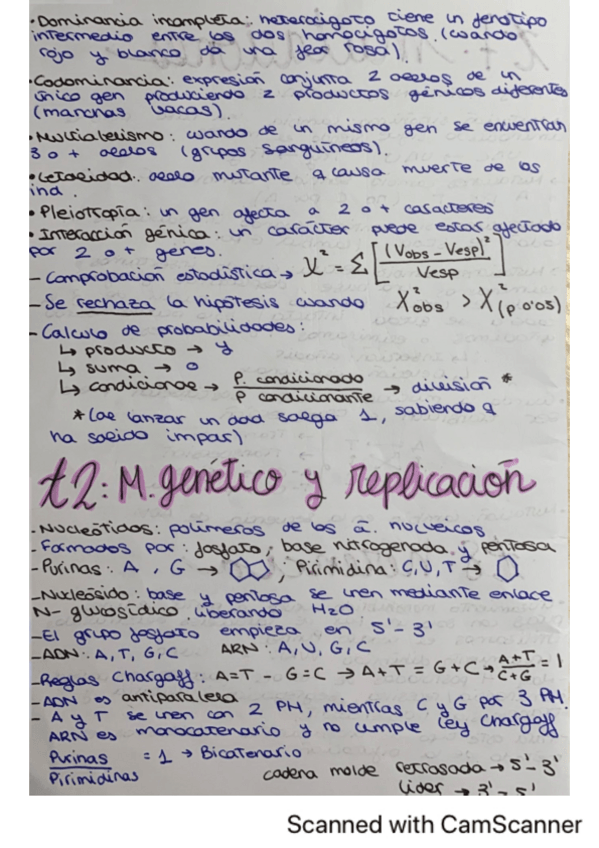 • Dominancia incompleta: heterocigoto tiene un fenotipo
intermedio entre los dos homocigotos. (cuando
rojo y blanco da una flor rosa).
• Codominancia: expresión conjunta 2 alelos de un
único gen produciendo 2 productos génicos diferentes
(manchas vacas).
• Multialelismo: cuando de un mismo gen se encuentran
3 o + alelos (grupos sanguíneos)
• Letalidad. alelo mutante q causa muerte de los
ind.
• Pleiotropía: un gen afecta a 2 o + caracteres
• Interacción génica: un carácter puede estar afectado
por 2 o + genes.
- Comprobación estadística → X² = Σ [(Vobs - Vesp)² / Vesp]
- Se rechaza la hipótesis cuando X²obs > X²(p 0'05)
- Calculo de probabilidades:
↳ producto → y
↳ suma → o
↳ condicional → P. condicionado / P condicionante → división *
* (al lanzar un dado salga 1, sabiendo q
ha salido impar)
t2: M. genético y replicación
. Nucleótidos: polímeros de los á. nucleicos
- Formados por: fosfato, base nitrogenada y pentosa
- Purinas: A, G → ; Pirimidina: C, U, T →
- Nucleósido: base y pentosa se unen mediante enlace
N- glucosídico liberando H₂O
- El grupo fosfato empieza en 5'- 3'
- ADN: A, T, G, C ARN: A, U, G, C
- Reglas Chargaff: A=T - G=C → A+T = G+C → A+T / C+G = 1
- ADN es antiparalela
- A y T se unen con 2 PH, mientras C y G por 3 PH.
ARN es monocatenario y no cumple ley Chargaff
Purinas / Pirimidinas = 1 → Bicatenario
cadena molde retrasada → 5'- 3'
lider → 3'- 5'
Scanned with CamScanner